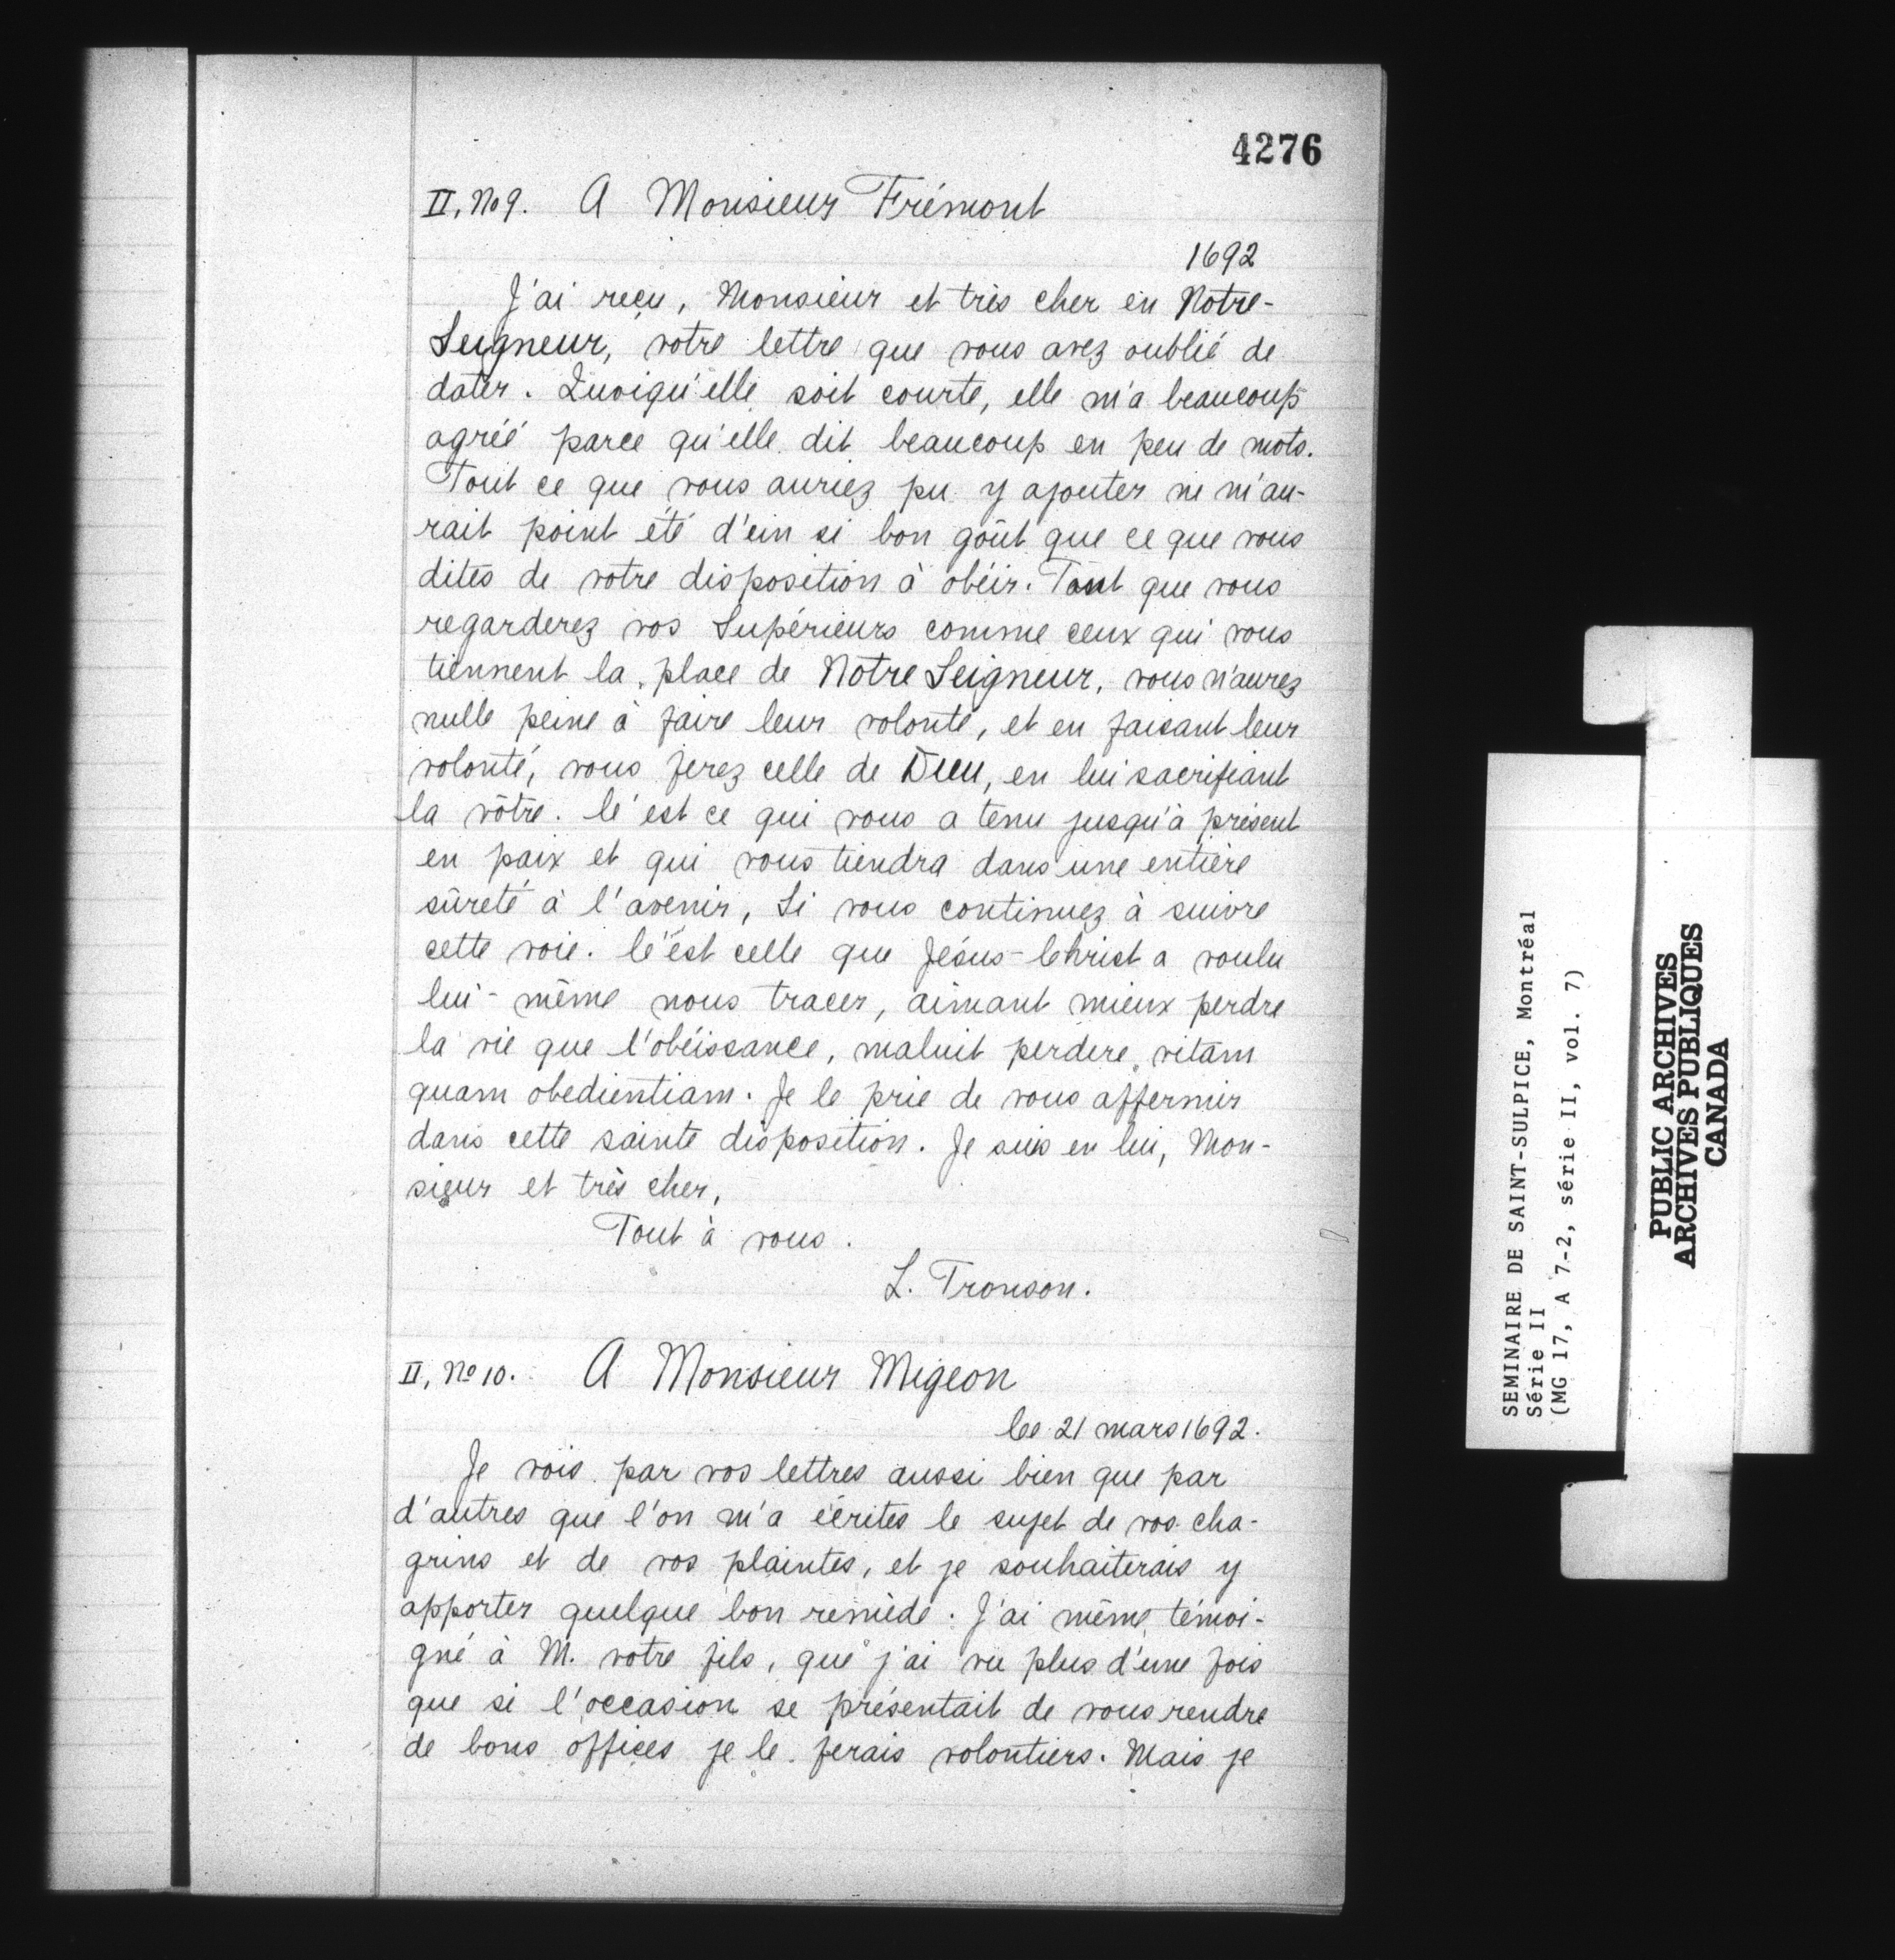 4276
II, No 9. A Monsieur Frémont
1692
J'ai reçu, Monsieur et très cher en Notre-
Seigneur, votre lettre que vous avez oublié de
dater. Quoiqu'elle soit courte, elle m'a beaucoup
agréé parce qu'elle dit beaucoup en peu de mots.
Tout ce que vous auriez pu y ajouter ne m'au-
rait point été d'un si bon goût que ce que vous
dites de votre disposition à obéir. Tant que vous
regarderez vos Supérieurs comme ceux qui vous
tiennent la place de Notre Seigneur, vous n'aurez
nulle peine à faire leur volonté, et en faisant leur
volonté, vous ferez celle de Dieu, en lui sacrifiant
la vôtre. C'est ce qui vous a tenu jusqu'à présent
en paix et qui vous tiendra dans une entière
sûreté à l'avenir, Si vous continuez à suivre
cette voie. C'est celle que Jésus-Christ a voulu
lui-même nous tracer, aimant mieux perdre
la vie que l'obéissance, maluit perdere vitam
quam obedientiam. Je le prie de vous affermir
dans cette sainte disposition. Je suis en lui, Mon-
sieur et très cher,
Tout à vous.
L. Tronson.
II, No 10. A Monsieur Migeon
Ce 21 mars 1692.
Je vois par vos lettres aussi bien que par
d'autres que l'on m'a écrites le sujet de vos cha-
grins et de vos plaintes, et je souhaiterais y
apporter quelque bon remède. J'ai même témoi-
gné à M. votre fils, que j'ai vu plus d'une fois
que si l'occasion se présentait de vous rendre
de bons offices je le ferais volontiers. Mais je
SEMINAIRE DE SAINT-SULPICE, Montréal
Série II
(MG 17, A 7-2, série II, vol. 7)
PUBLIC ARCHIVES
ARCHIVES PUBLIQUES
CANADA